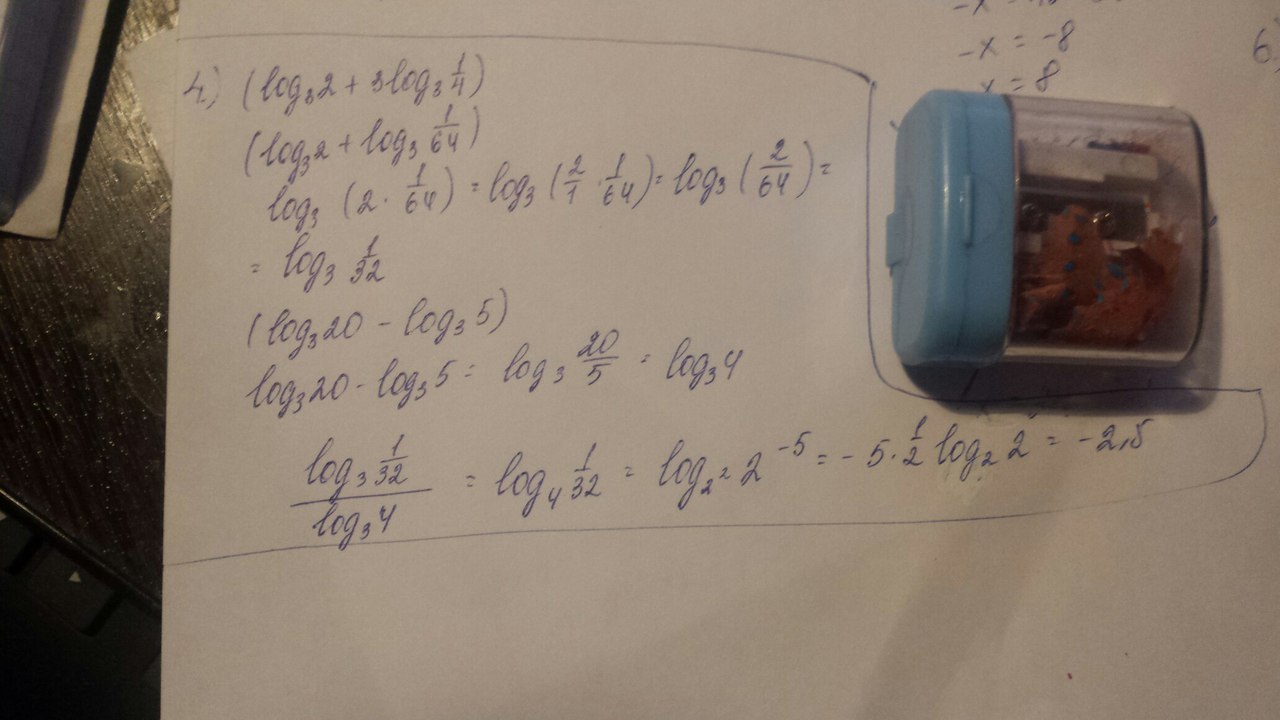 -x = -8
x = 8
6.
4) (log₃2 + 3log₃ 1/4)
(log₃2 + log₃ 1/64)
log₃ (2 · 1/64) = log₃ (2/1 · 1/64) = log₃ (2/64) =
= log₃ 1/32
(log₃20 - log₃5)
log₃20 - log₃5 = log₃ 20/5 = log₃4
log₃ 1/32 / log₃4 = log₄ 1/32 = log₂² 2⁻⁵ = -5 · 1/2 log₂ 2 = -2,5